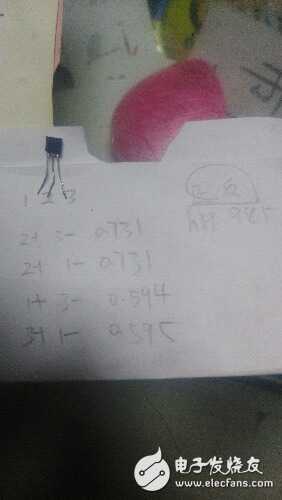 1 2 3
2+ 3- 0.731
2+ 1- 0.731
1+ 3- 0.594
3+ 1- 0.595
电子发烧友
www.elecfans.com